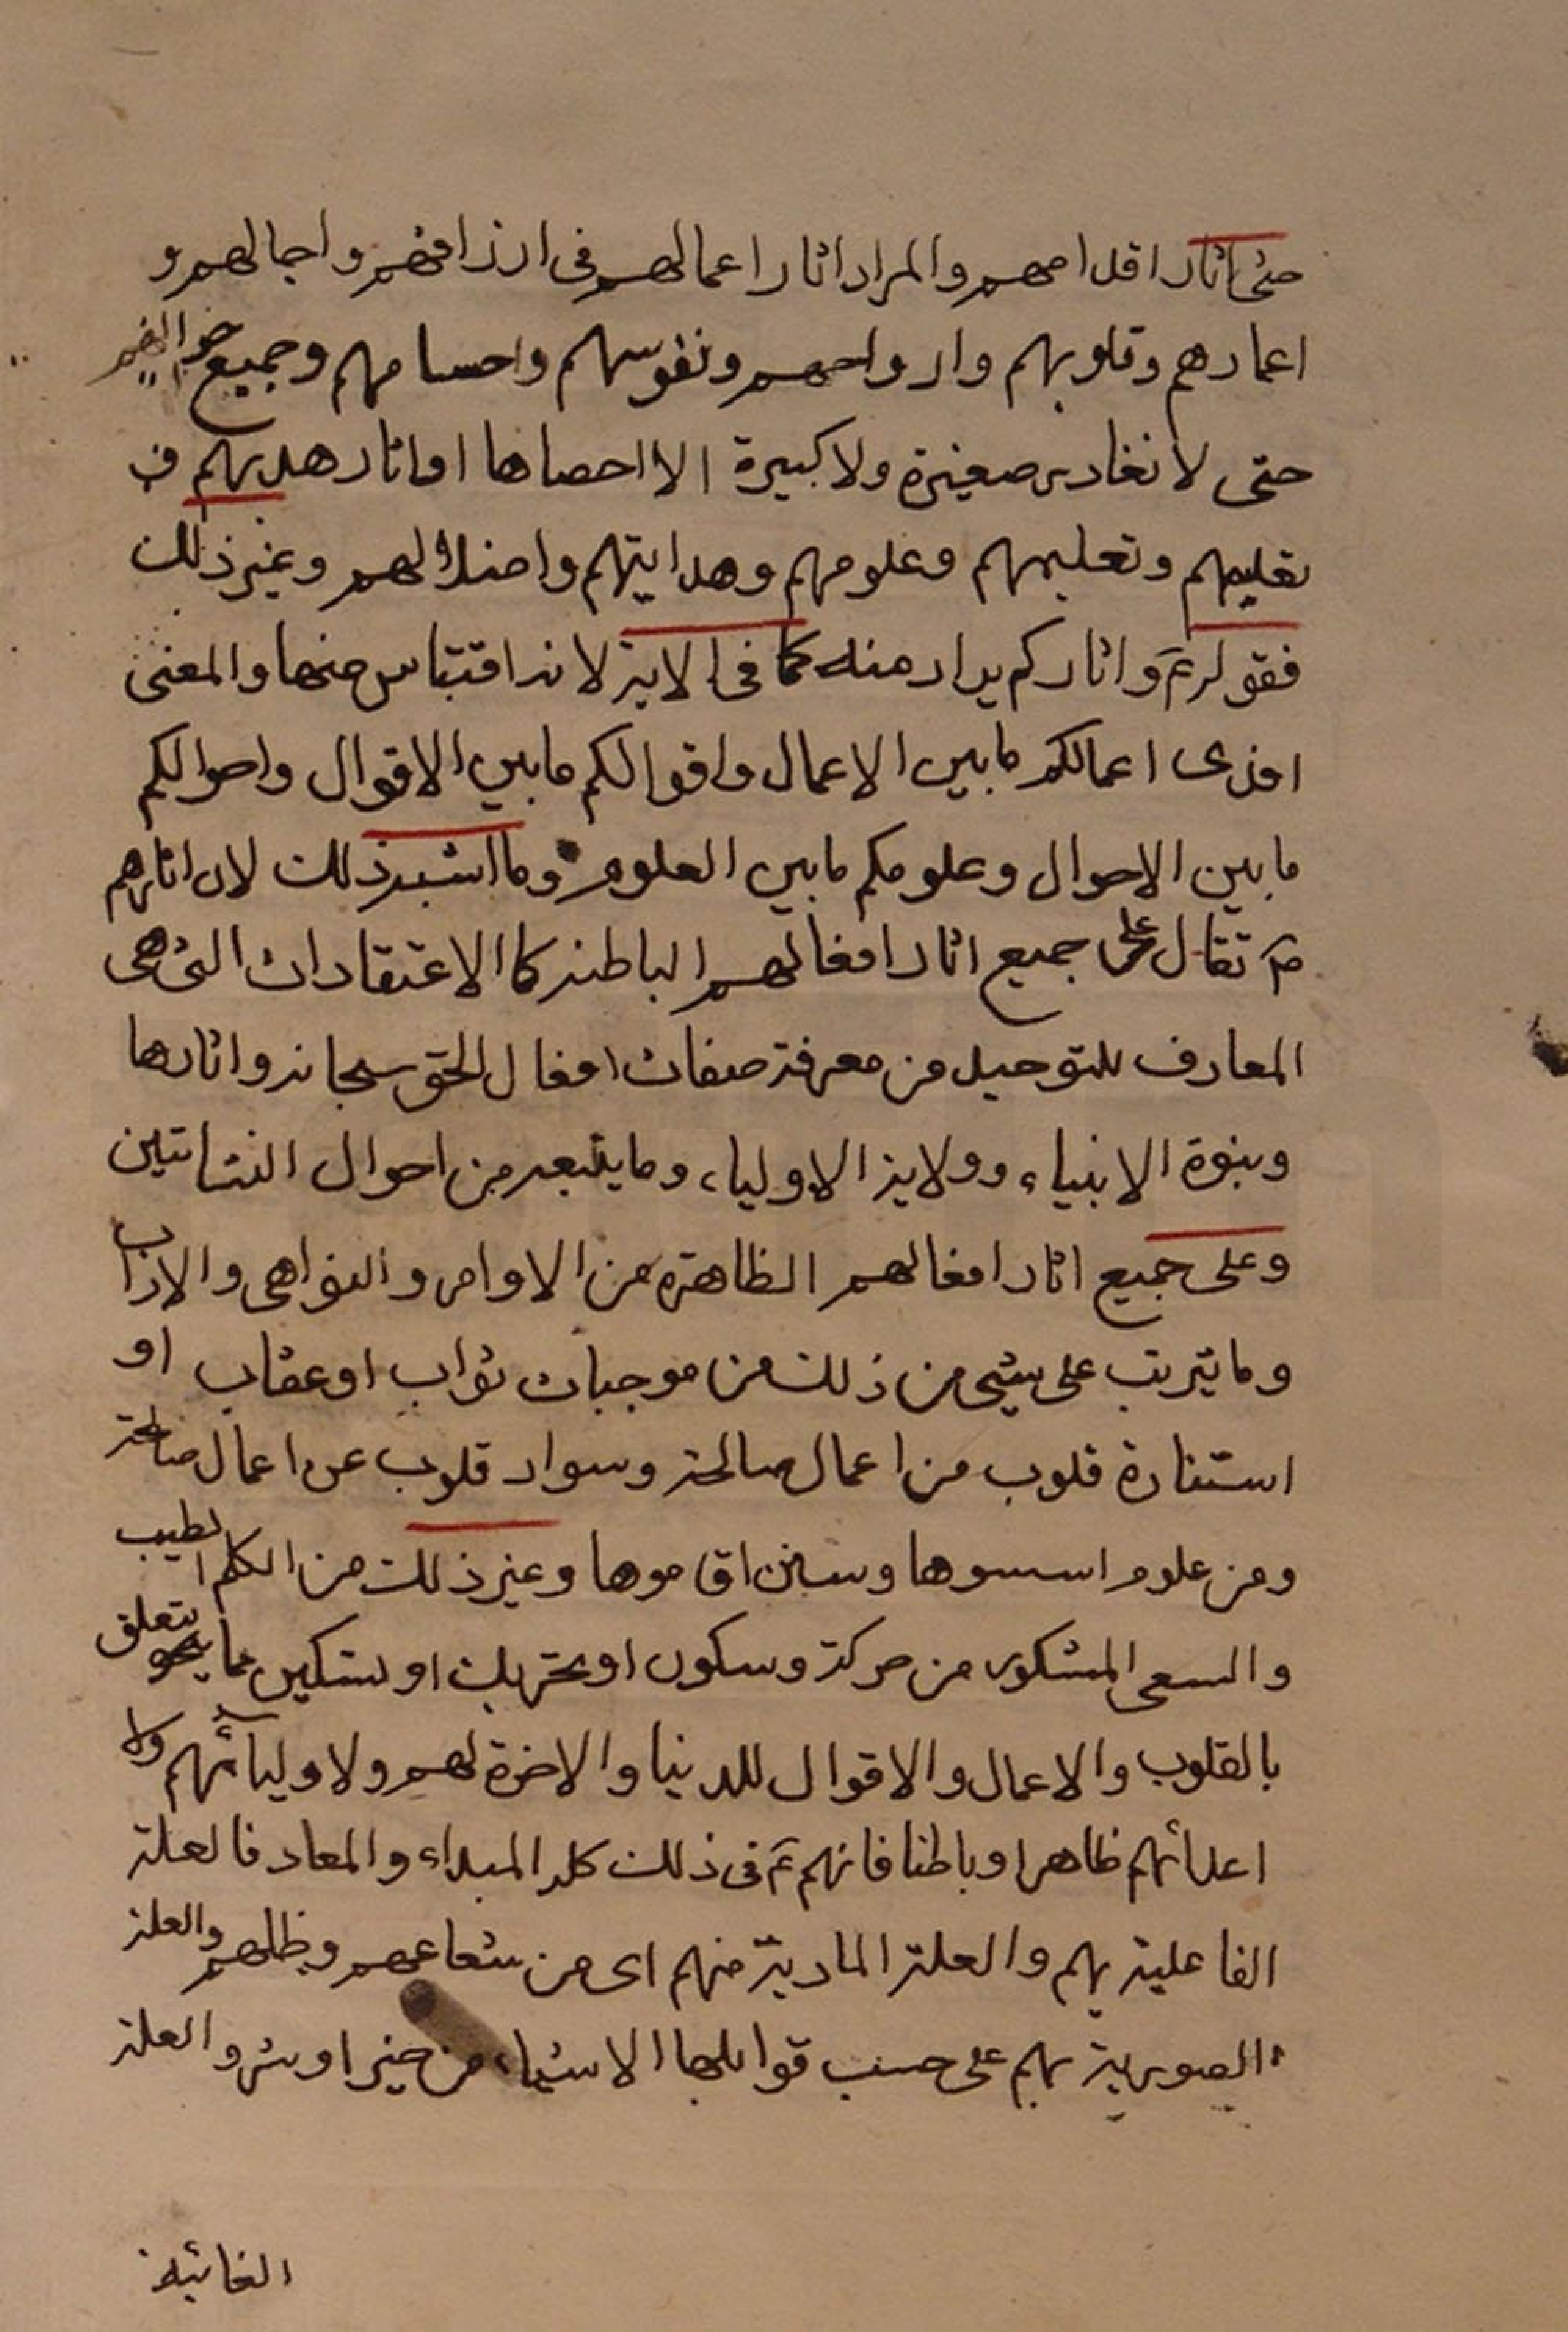 حتى اثار اقدامهم والمراد اثار اعمالهم فى ارزاقهم واجالهم و
اعمارهم وقلوبهم وارواحهم ونفوسهم واجسامهم وجميع احوالهم
حتى لا نغادر صغيرة ولا كبيرة الا احصاها او اثار هديهم فى
تعليمهم وتعليمهم وعلومهم وهدايتهم واضلالهم وغير ذلك
فقوله ع واثاركم يراد منه كما فى الاية لانه اقتباس منها والمعنى
افدى اعمالكم ما بين الاعمال واقوالكم ما بين الاقوال واحوالكم
ما بين الاحوال وعلومكم ما بين العلوم وما اشبه ذلك لان اثارهم
ع تقال على جميع اثار افعالهم الباطنة كالاعتقادات التى هى
المعارف للتوحيد من معرفة صفات افعال الحق سبحانه واثارها
وبنوة الانبياء وولاية الاولياء وما يتبعه من احوال النشاتين
وعلى جميع اثار افعالهم الظاهرة من الاوامر والنواهى والاداب
وما يترتب على شيى من ذلك من موجبات ثواب او عقاب او
استنارة قلوب من اعمال صالحة وسواد قلوب عن اعمال صالحة
ومن علوم اسسوها وسنن اقاموها وغير ذلك من الكلم الطيب
والسعى المشكور من حركة وسكون او تحريك او تسكين مما يتعلق
بالقلوب والاعمال والاقوال للدنيا والاخرة لهم ولاوليائهم ولا
اعدائهم ظاهرا وباطنا فانهم ع فى ذلك كله المبداء والمعاد فالعلة
الفاعلية بهم والعلة المادية منهم اى من شعاعهم وظلهم والعلة
الصورية بهم على حسب قوابلها الاشياء من خير او شر والعلة
الغائية